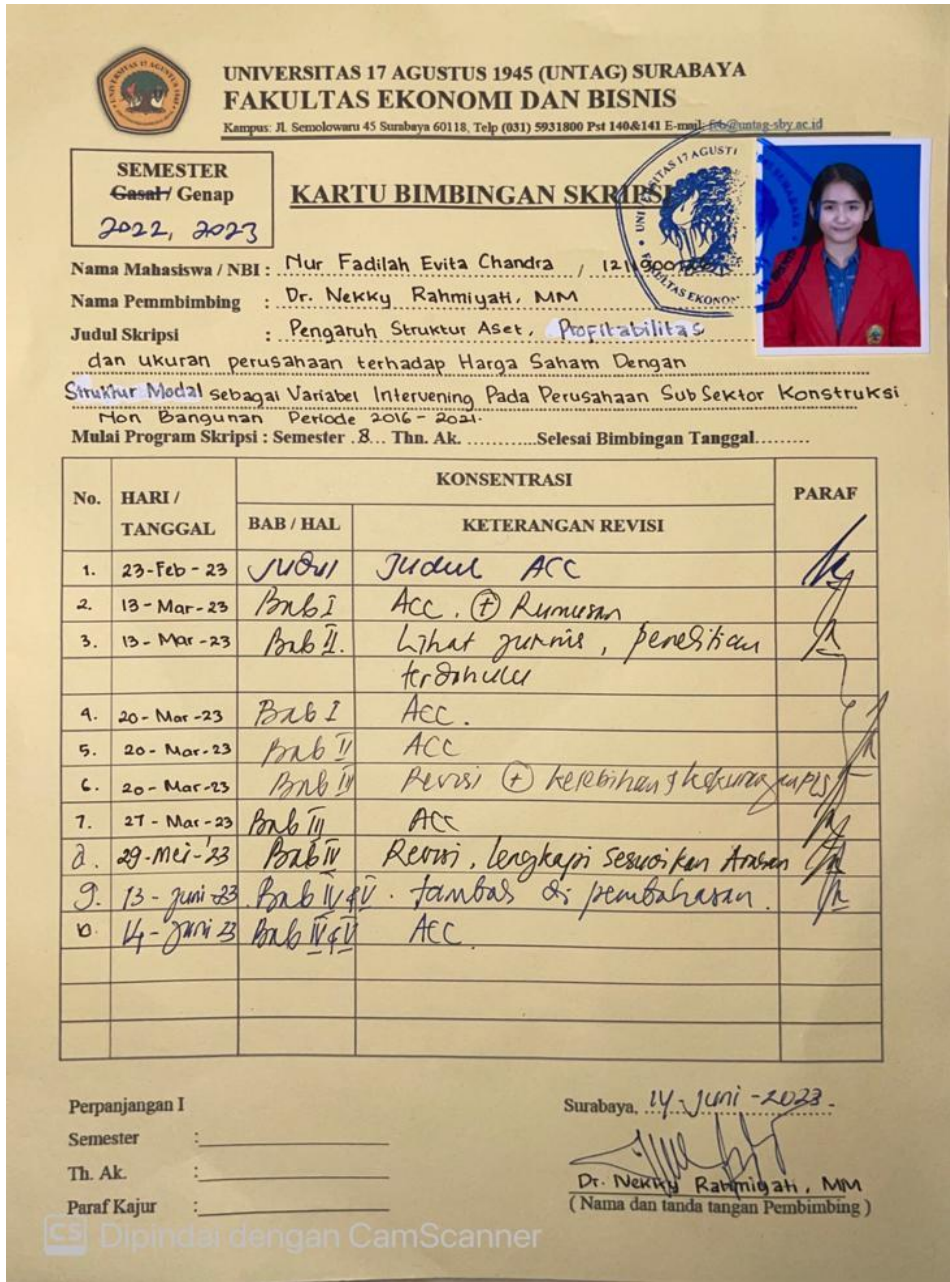 UNIVERSITAS 17 AGUSTUS 1945 (UNTAG) SURABAYA
FAKULTAS EKONOMI DAN BISNIS
Kampus: Jl. Semolowaru 45 Surabaya 60118, Telp (031) 5931800 Pst 140&141 E-mail: feb@untag-sby.ac.id
SEMESTER
Gasal / Genap
2022, 2023
KARTU BIMBINGAN SKRIPSI
Nama Mahasiswa / NBI : Nur Fadilah Evita Chandra /
Nama Pemmbimbing : Dr. Nekky Rahmiyati, MM
Judul Skripsi : Pengaruh Struktur Aset, Profitabilitas
dan ukuran perusahaan terhadap Harga Saham Dengan
Struktur Modal sebagai Variabel Intervening Pada Perusahaan Sub Sektor Konstruksi
Non Bangunan Periode 2016 - 2021.
Mulai Program Skripsi : Semester .8... Thn. Ak. ...........Selesai Bimbingan Tanggal.........
No. HARI / TANGGAL KONSENTRASI PARAF
BAB / HAL KETERANGAN REVISI
1. 23-Feb-23 Judul Judul ACC
2. 13-Mar-23 Bab I ACC. + Rumusan
3. 13-Mar-23 Bab II. Lihat jurnis, penelitian
terdahulu
4. 20-Mar-23 Bab I ACC.
5. 20-Mar-23 Bab II ACC
6. 20-Mar-23 Bab III Revisi + kelebihan & kekurangan PLS
7. 27-Mar-23 Bab III ACC
8. 29-Mei-'23 Bab IV Revisi, lengkapi sesuaikan
9. 13-Juni-23 Bab IV & V. tambah di pembahasan.
10. 14-Juni 23 Bab IV & V ACC
Perpanjangan I
Semester :
Th. Ak. :
Paraf Kajur :
Surabaya, 14-Juni-2023.
Dr. Nekky Rahmiyati, MM
( Nama dan tanda tangan Pembimbing )
CS Dipindai dengan CamScanner